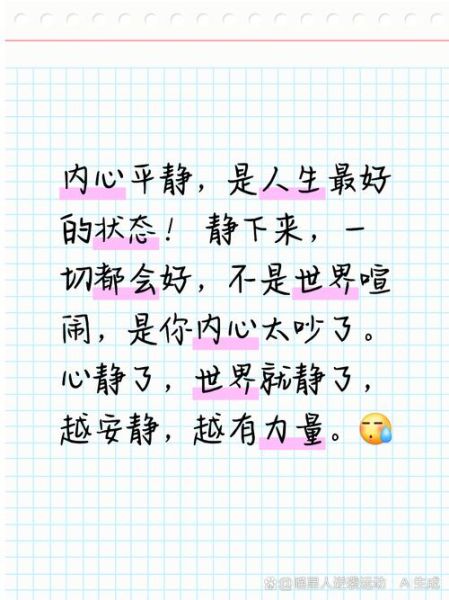 内心平静，是人生最好
的状态！ 静下来，一
切都会好，不是世界喧
闹，是你内心太吵了。
心静了，世界就静了，
越安静，越有力量。😮‍💨
@喵星人逆袭运动 A 生成